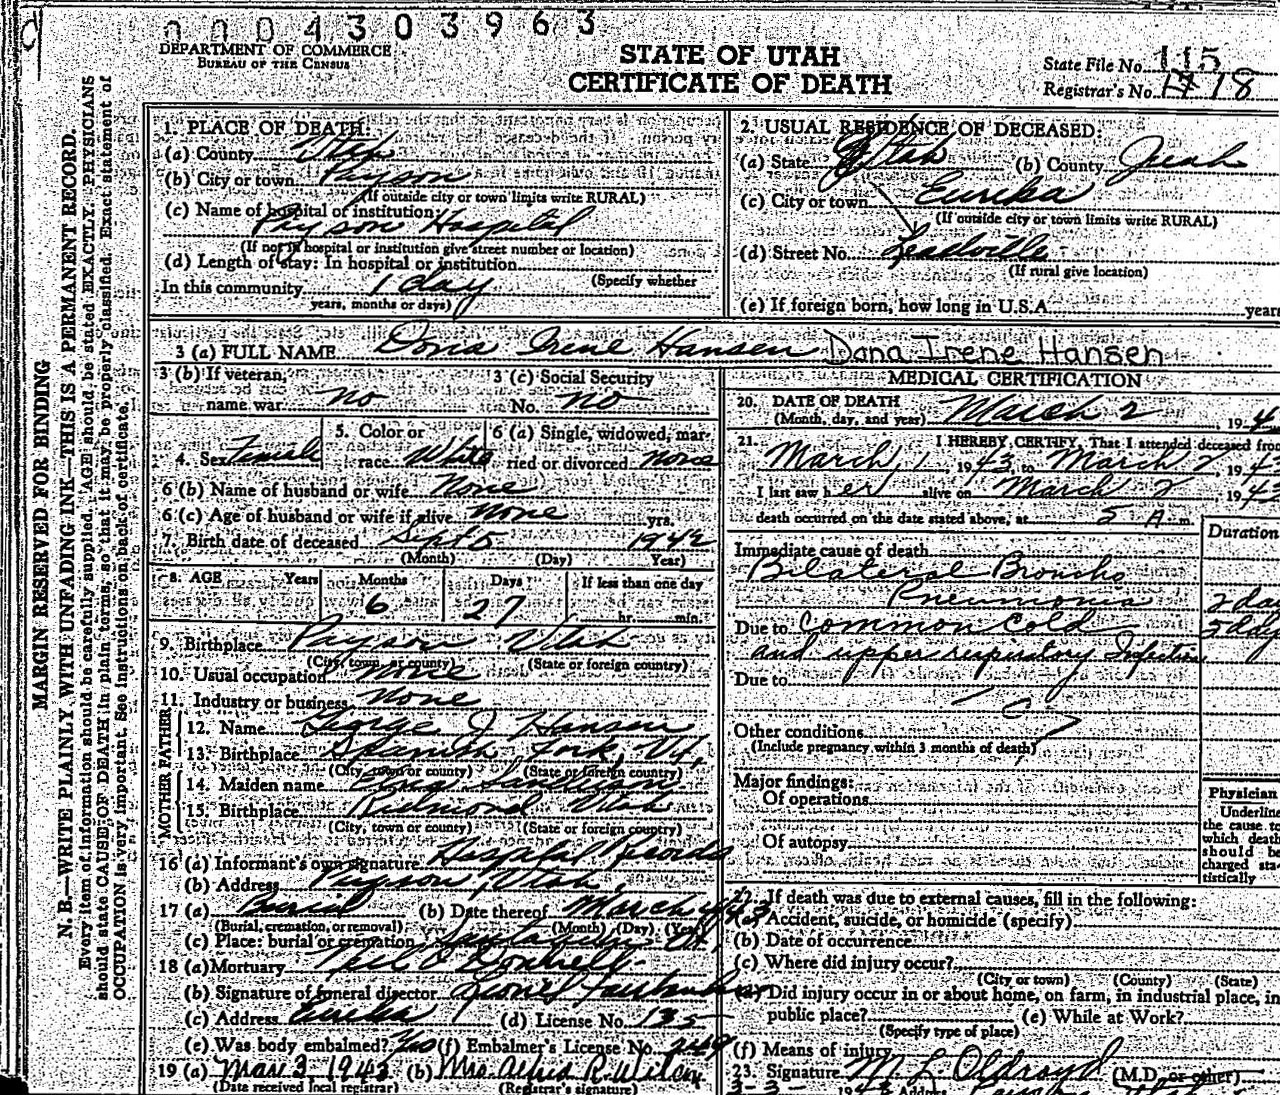 0004303963
DEPARTMENT OF COMMERCE
BUREAU OF THE CENSUS
STATE OF UTAH
CERTIFICATE OF DEATH
State File No. 115
Registrar's No. 18
MARGIN RESERVED FOR BINDING
N. B.—WRITE PLAINLY WITH UNFADING INK—THIS IS A PERMANENT RECORD.
Every item of information should be carefully supplied. AGE should be stated EXACTLY. PHYSICIANS
should state CAUSE OF DEATH in plain terms, so that it may be properly classified. Exact statement of
OCCUPATION is very important. See instructions on back of certificate.
1. PLACE OF DEATH:
(a) County Utah
(b) City or town Payson
(If outside city or town limits write RURAL)
(c) Name of hospital or institution:
Payson Hospital
(If not in hospital or institution give street number or location)
(d) Length of stay: In hospital or institution
(Specify whether
In this community 1 day
years, months or days)
2. USUAL RESIDENCE OF DECEASED:
(a) State Utah (b) County Juab
(c) City or town Eureka
(If outside city or town limits write RURAL)
(d) Street No. Leadville
(If rural give location)
(e) If foreign born, how long in U.S.A. years
3 (a) FULL NAME Dona Irene Hansen Dona Irene Hansen
3 (b) If veteran,
name war no
3 (c) Social Security
No. no
4. Sex Female
5. Color or
race White
6 (a) Single, widowed, mar-
ried or divorced none
6 (b) Name of husband or wife None
6 (c) Age of husband or wife if alive None yrs.
7. Birth date of deceased Sept 5 1942
(Month) (Day) Year)
8. AGE Years Months Days If less than one day
6 27 hr. min.
9. Birthplace Payson Utah
(City, town, or county) (State or foreign country)
10. Usual occupation None
11. Industry or business None
FATHER
12. Name George J Hansen
13. Birthplace Spanish Fork, Ut.
(City, town or county) (State or foreign country)
MOTHER
14. Maiden name
15. Birthplace Richmond Utah
(City, town or county) (State or foreign country)
16 (a) Informant's own signature Hospital Records
(b) Address Payson, Utah
17 (a) Burial (b) Date thereof March 4 43
(Burial, cremation, or removal) (Month) (Day) (Year)
(c) Place: burial or cremation
18 (a) Mortuary
(b) Signature of funeral director
(c) Address Eureka (d) License No. 135
(e) Was body embalmed? Yes (f) Embalmer's License No. 249
19 (a) Mar 3 1943 (b) Mrs.
(Date received local registrar) (Registrar's signature)
MEDICAL CERTIFICATION
20. DATE OF DEATH
(Month, day, and year) March 2, 194
21. I HEREBY CERTIFY, That I attended deceased from
March 1 1943, to March 2, 194
I last saw her alive on March 2, 1943
death occurred on the date stated above, at 5 A m.
Duration
Immediate cause of death
Bilateral Broncho
Pneumonia 2 da
Due to Common Cold 5 day
and upper respiratory Infection
Due to
Other conditions
(Include pregnancy within 3 months of death)
Major findings:
Of operations
Of autopsy
Physician
Underline
the cause to
which death
should be
charged sta-
tistically
22. If death was due to external causes, fill in the following:
(a) Accident, suicide, or homicide (specify)
(b) Date of occurrence
(c) Where did injury occur?
(City or town) (County) (State)
(d) Did injury occur in or about home, on farm, in industrial place, in
public place? (e) While at Work?
(Specify type of place)
(f) Means of injury
23. Signature M. L. Oldroyd (M.D. or other)
3-3-